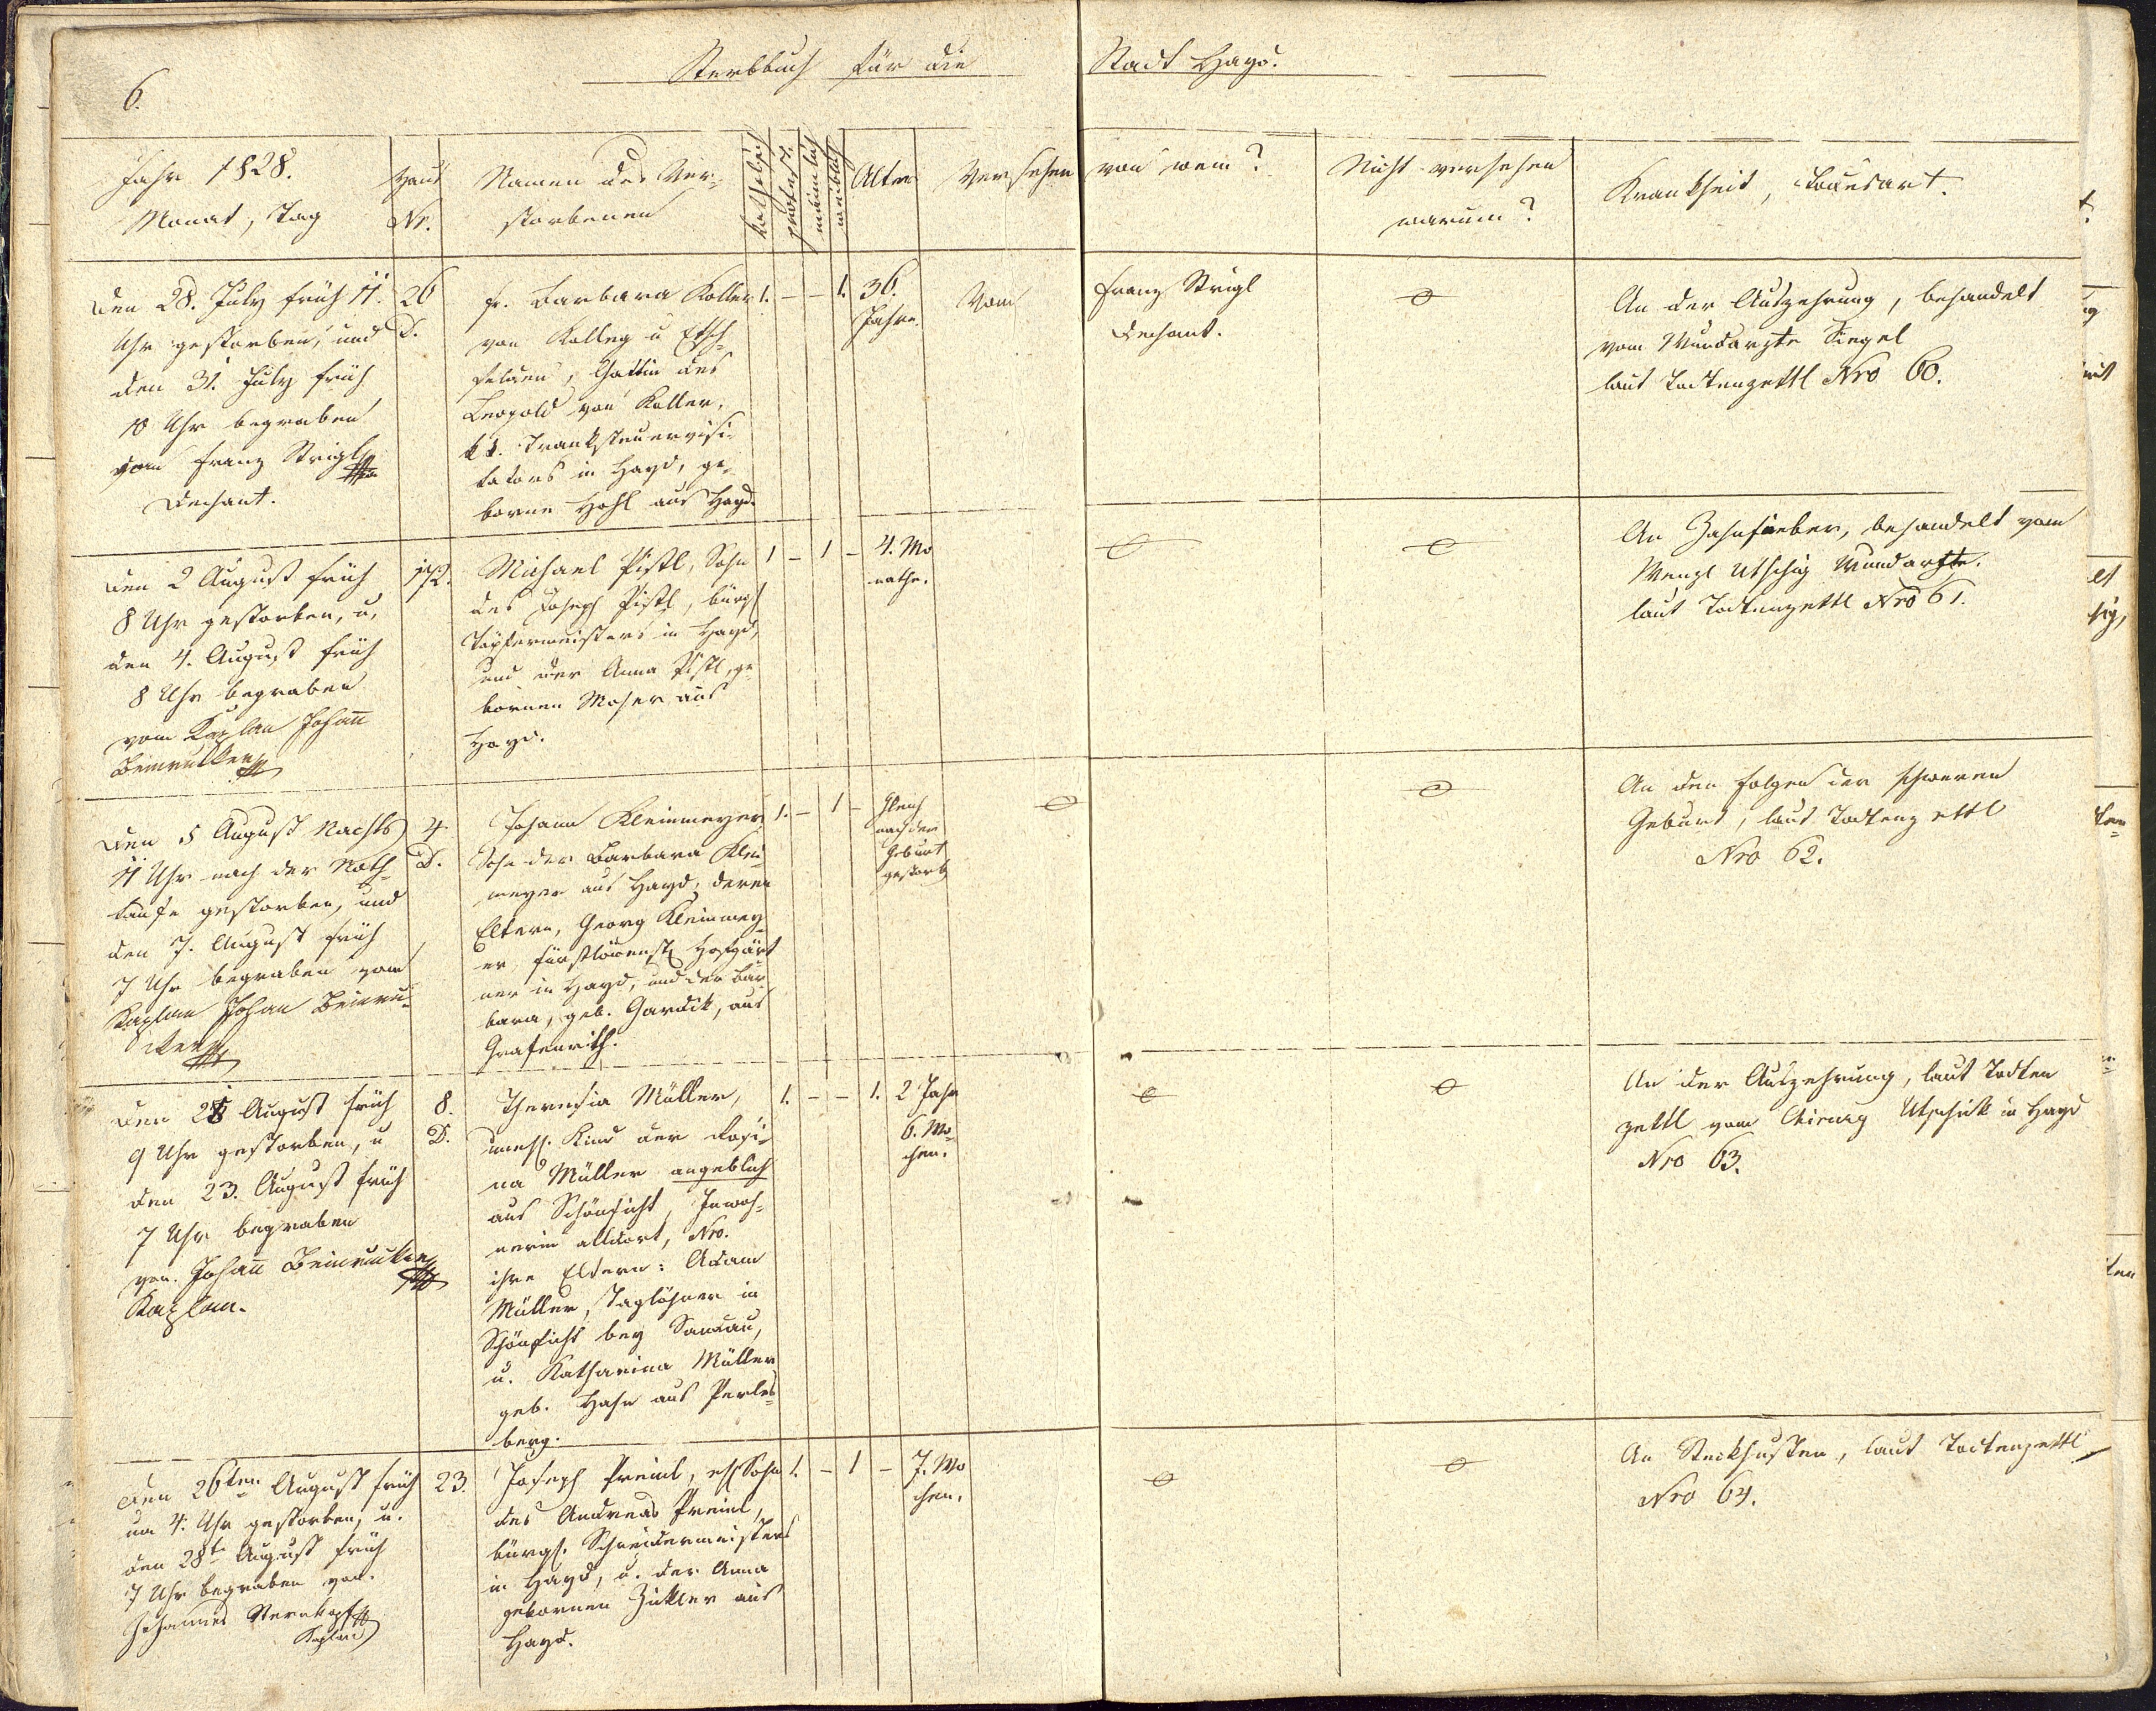 6.
Sterbbuch für die Stadt Hayd.
Jahr 1828.
Monat, Tag
Haus
Nr.
Namen des Ver-
storbenen
katholisch
protest.
männlich
weiblich
Alter
Versehen von wem?
Nicht versehen
warum?
Krankheit, Todesart.
den 28. July früh 11.
Uhr gestorben, und
den 31. July früh
10 Uhr begraben
vom Franz Strigl
Dechant.
26
D.
Fr. Barbara Koller
von Kolleg u
felden, Gattin des
Leopold von Koller,
kk. Tranksteuervisi-
tators in Hayd, ge-
borne Hohl aus Hayd.
1. – – 1.
36.
Jahre.
Vom
Franz Strigl
Dechant.
An der Auszehrung, behandelt
vom Wundarzte Siegel
laut Todtenzettl Nro 60.
den 2 August früh
8 Uhr gestorben, u.
den 4. August früh
8 Uhr begraben
vom Kaplan Johann
172.
Michael Pistl, Sohn
des Joseph Pistl, bürgl
Töpfermeisters in Hayd,
und der Anna Pistl, ge-
bornen Moser aus
Hayd.
1 – 1 –
4. Mo
nathe.
An Zahnfieber, behandelt vom
Wenzl Utschig Wundarzte.
laut Todtenzettl Nro 61.
den 5 August Nachts
11 Uhr nach der Noth-
taufe gestorben, und
den 7. August früh
7 Uhr begraben vom
Kaplan Johan
4.
D.
Johann Kleinmeyer
Sohn der Barbara Klein
meyer aus Hayd, deren
Eltern, Georg Kleinmey-
er fürstlöwenst Hofgärt
ner in Hayd, und der Bar
bara, geb. Gardik, aus
Grafenrith.
1. – 1 –
Gleich
nach der
Geburt
gestorb
An den Folgen der schweren
Geburt, laut Todtenzettl
Nro 62.
den 21 August früh
9 Uhr gestorben, u
den 23. August früh
7 Uhr begraben
von Johann
Kaplan.
8.
D.
Theresia Müller,
unehl. Kind der Rosi-
na Müller angeblich
aus Schönficht, Inwoh-
nerin alldort, Nro.
ihre Eltern: Adam
Müller, Taglöhner in
Schönficht bey Sandau,
u. Katharina Müller
geb. Hahn aus Perles-
berg.
1. – – 1.
2 Jahr
6. Wo-
chen.
An der Auszehrung, laut Todten
zettl vom Chirurg Utschik in Hayd
Nro 63.
den 26ten August früh
um 4. Uhr gestorben, u.
den 28te August früh
7 Uhr begraben von
Johannes Sternkopf
Kaplan
23.
Joseph Preinl, ehl Sohn
des Andreas Preinl,
bürgl. Schneidermeisters
in Hayd, u. der Anna
gebornen Zickler aus
Hayd.
1. – 1 –
7. Wo
chen.
An Steckhusten, laut Todtenzettl
Nro 64.